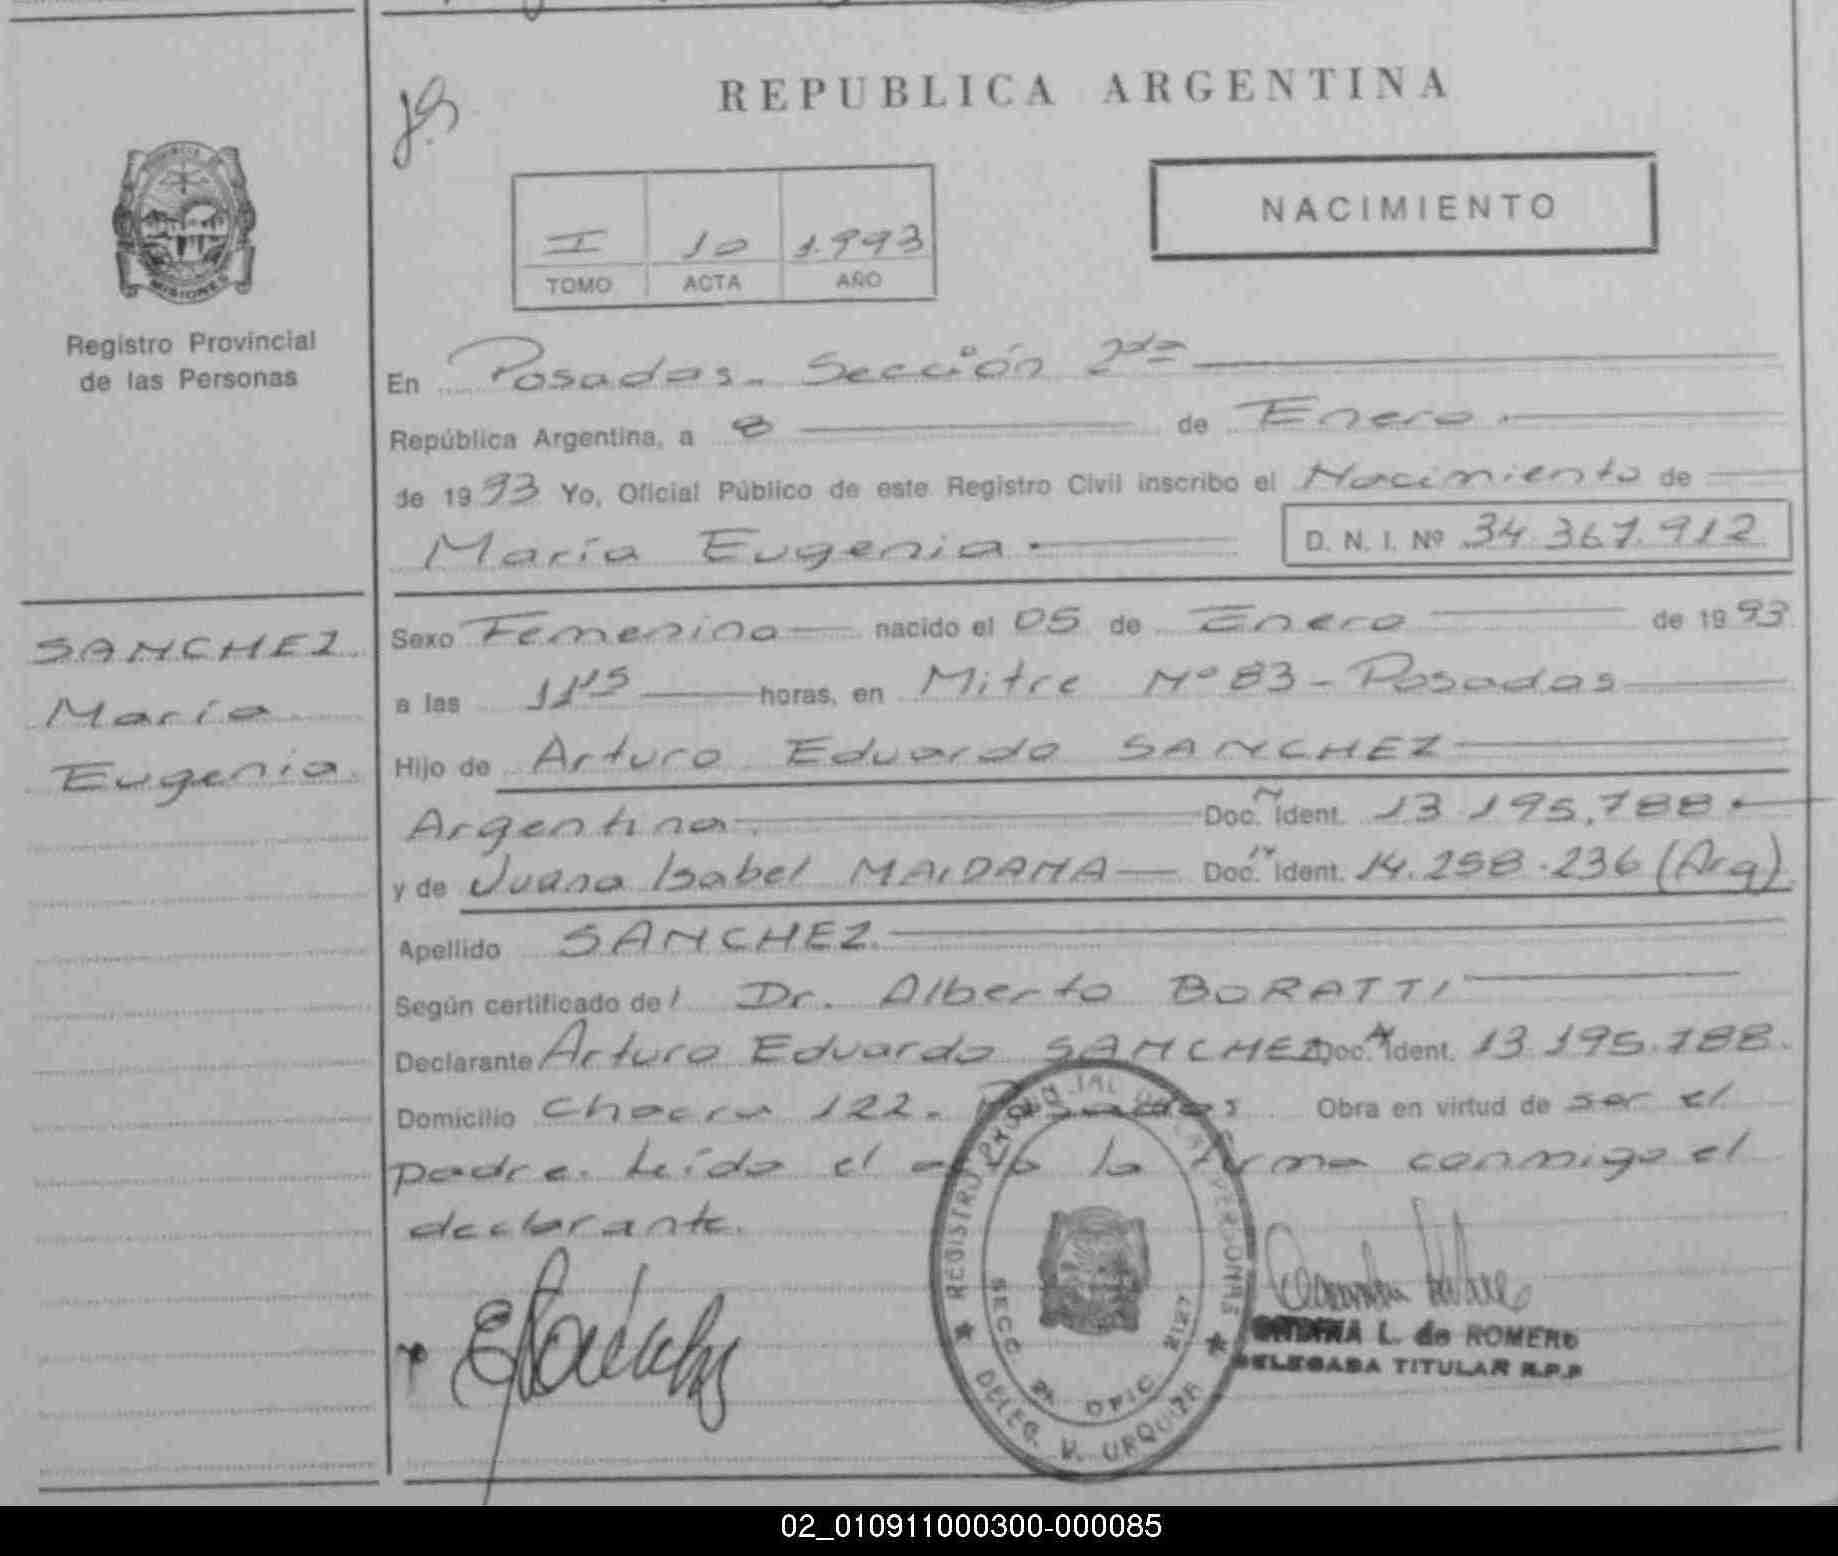 REPUBLICA ARGENTINA
NACIMIENTO
I 10 1.993
TOMO ACTA AÑO
MISIONES
Registro Provincial
de las Personas
En Posadas. Sección 2da
República Argentina, a 8 de Enero.
de 1993 Yo, Oficial Público de este Registro Civil inscribo el Nacimiento de
María Eugenia.
D. N. I. Nº 34.367.912
SANCHEZ
María
Eugenia.
Sexo Femenino nacido el 05 de Enero de 1993
a las 11:15 horas, en Mitre Nº 83 - Posadas
Hijo de Arturo Eduardo SANCHEZ
Argentina. Doc. Ident. 13.195.788.
y de Juana Isabel MAIDANA Doc. Ident. 14.258.236 (Arg).
Apellido SANCHEZ.
Según certificado del Dr. Alberto BORATTI
Declarante Arturo Eduardo SANCHEZ Doc. Ident. 13.195.788.
Domicilio Chacra 122. Posadas Obra en virtud de ser el
padre. Leído el acta la firma conmigo el
declarante.
REGISTRO PROVINCIAL DE LAS PERSONAS
SECC 2a OFIC 2127
DELEG. V. URQUIZA
L. de ROMERO
DELEGADA TITULAR R.P.P
02_010911000300-000085